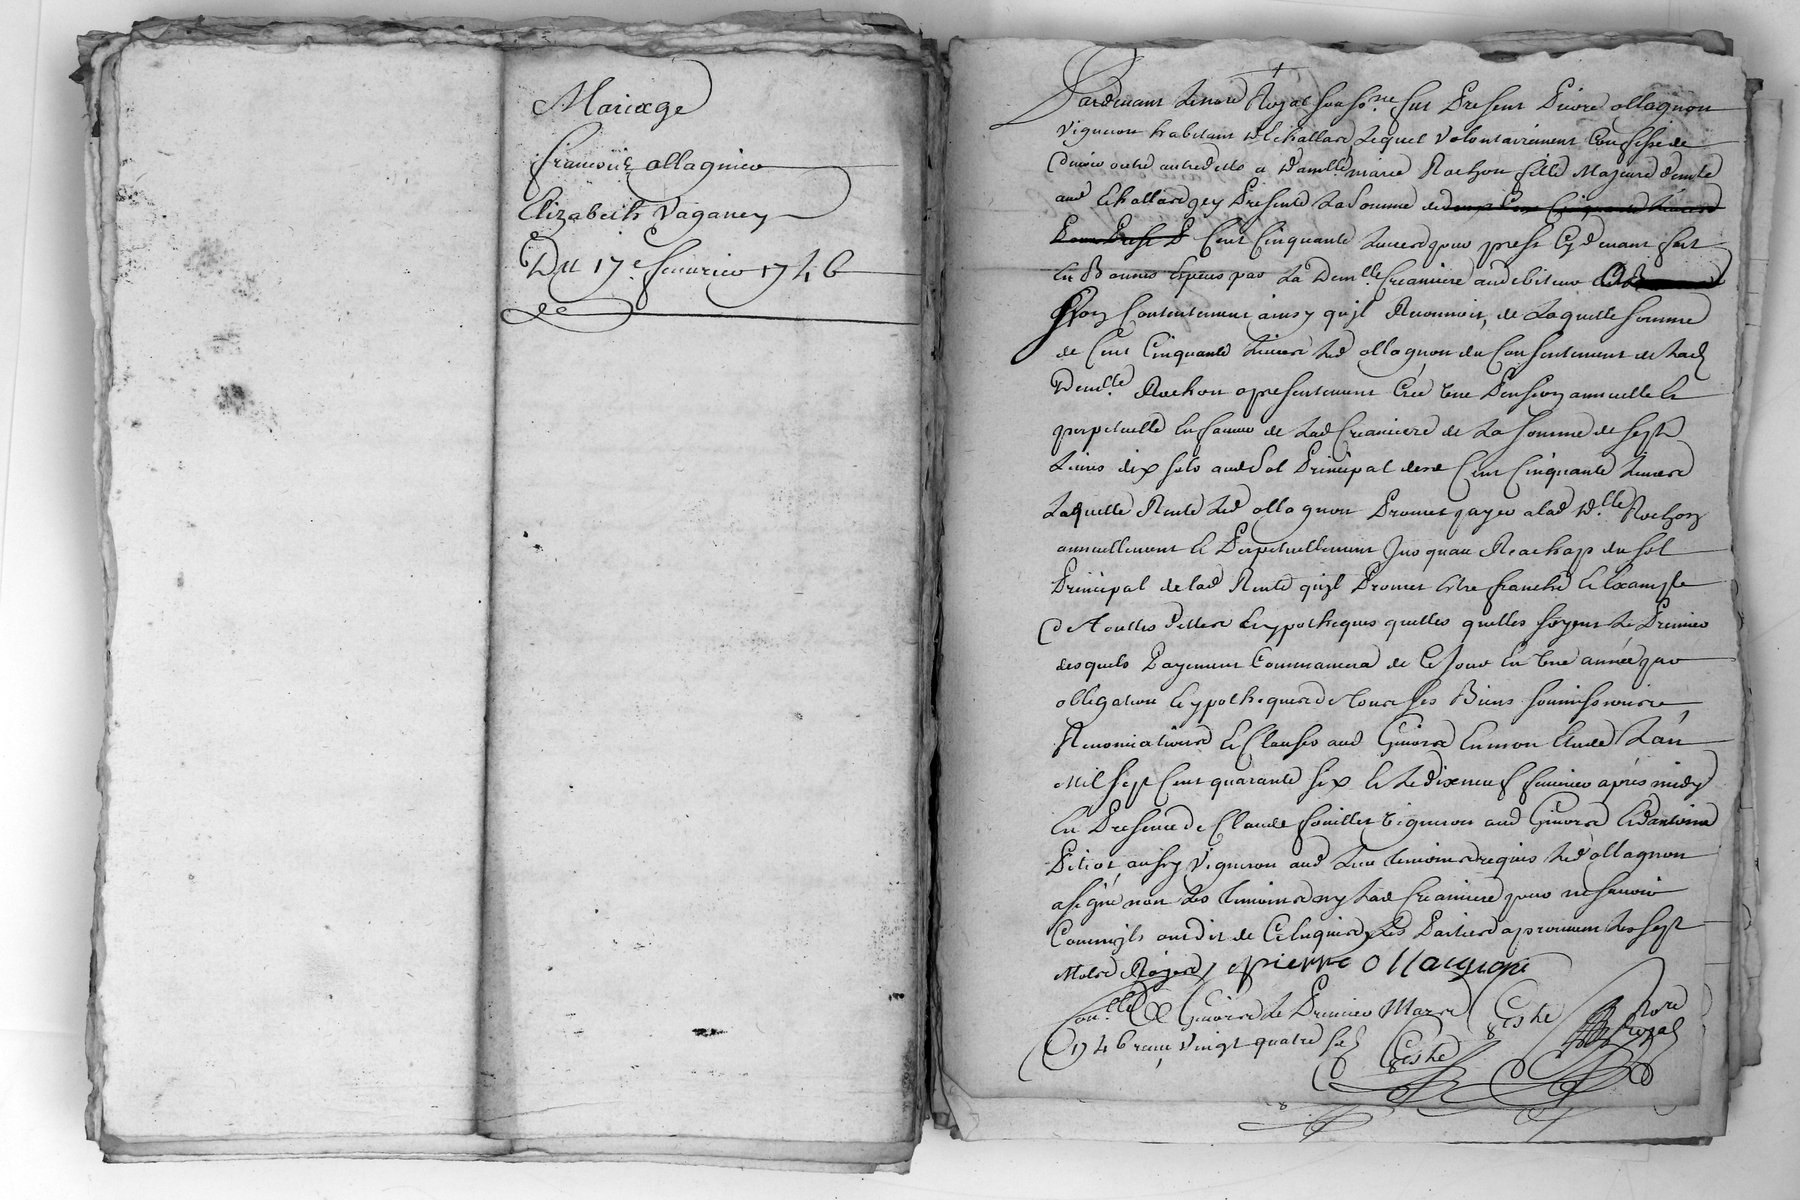 Mariage
francois ollagnier
Elizabeth Vaganey
Du 17e. feuvrier 1746
Pardeuant Le nore Royal soussne fut Present Pierre ollagnon
vigneron habitant dEchallas Lequel volontairement Confesse de
a damlle marie Rochon fille Majeure
aud Echallas ycy Presente La Somme de
Cent Cinquante Liures pour prest Cy deuant fait
En Bonnes Especes par La Demlle. Creanciere aud debiteur
Son Contentement ainsy quil Reconnoit, de Laquelle somme
de Cent Cinquante Liures Led ollagnon du Consentement de Lad
Demlle. Rochon apresentement Créé Une Pension annuelle Et
perpetuelle En faueur de Lad Creanciere de La Somme de Sept
Liures dix sols aud Sol Principal desd Cent Cinquante Liures
Laquelle Rente Led ollagnon Promet payer a lad D.lle Rochon
annuellement Et Perpetuellement Jusquau Reachap du sol
Principal de lad Rente quil Promet Estre franche Et Exampte
de toutes dettes Et ypotheques quelles quelles soyent Le Premier
desquels Payement Commancera de Ce Jour En Une année par
obligation Et ypotheques de tous ses Biens soumissions
Renonciations Et Clauses aud Giuors En mon Etude Lan
Mil sept Cent quarante six Et Le dixneuf feurier aprés midy
En Presence de Claude fouillet Vigneron aud Giuors Et dantoine
Pitiot aussy Vigneron aud Lieu temoins requis Led ollagnon
a signé non Les temoins ny Lad Creanciere pour ne sauoir
Comm'ils ont dit de Ce Enquis Les Parties aprouuent Les sept
Mots Rayes pierre Ollagnon
Con.llé a Giuors Le Premier Mars
1746 recu Vingt quatre sols
nore
Royal